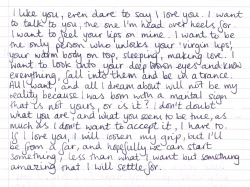 I like you, even dare to say I love you. I want
to talk to you, the one I'm head over heels for.
I want to feel your lips on mine. I want to be
the only person who unlocks your virgin lips,
your warm body on top, sleeping, making love. I
want to look into your deep brown eyes and know
everything, fall into them and be in a trance.
All I want, and all I dream about will not be my
reality because I was born with a mantal sign
that is not yours, or is it? I don't doubt
what you are, and what you seem to be true, as
much as I don't want to accept it, I have to.
If I love you, I will loosen my grip, but I'll
be from a far, and hopefully we can start
something, less than what I want but something
amazing that I will settle for.